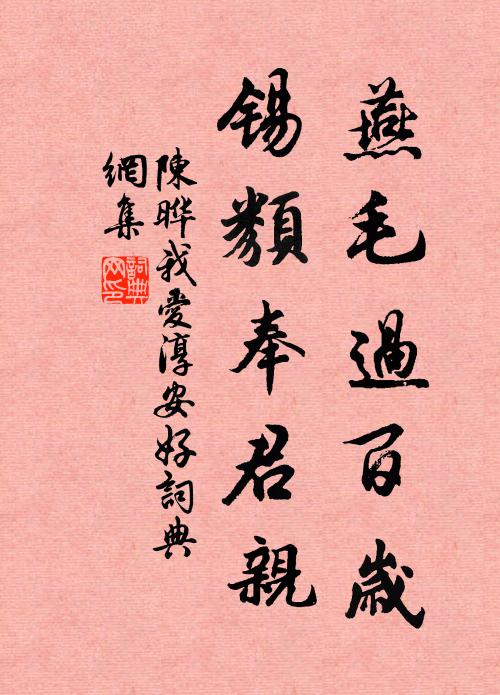 燕毛過百歲
錫類奉君親
陳曄我愛淳安好詞典
網集
詞典
网印